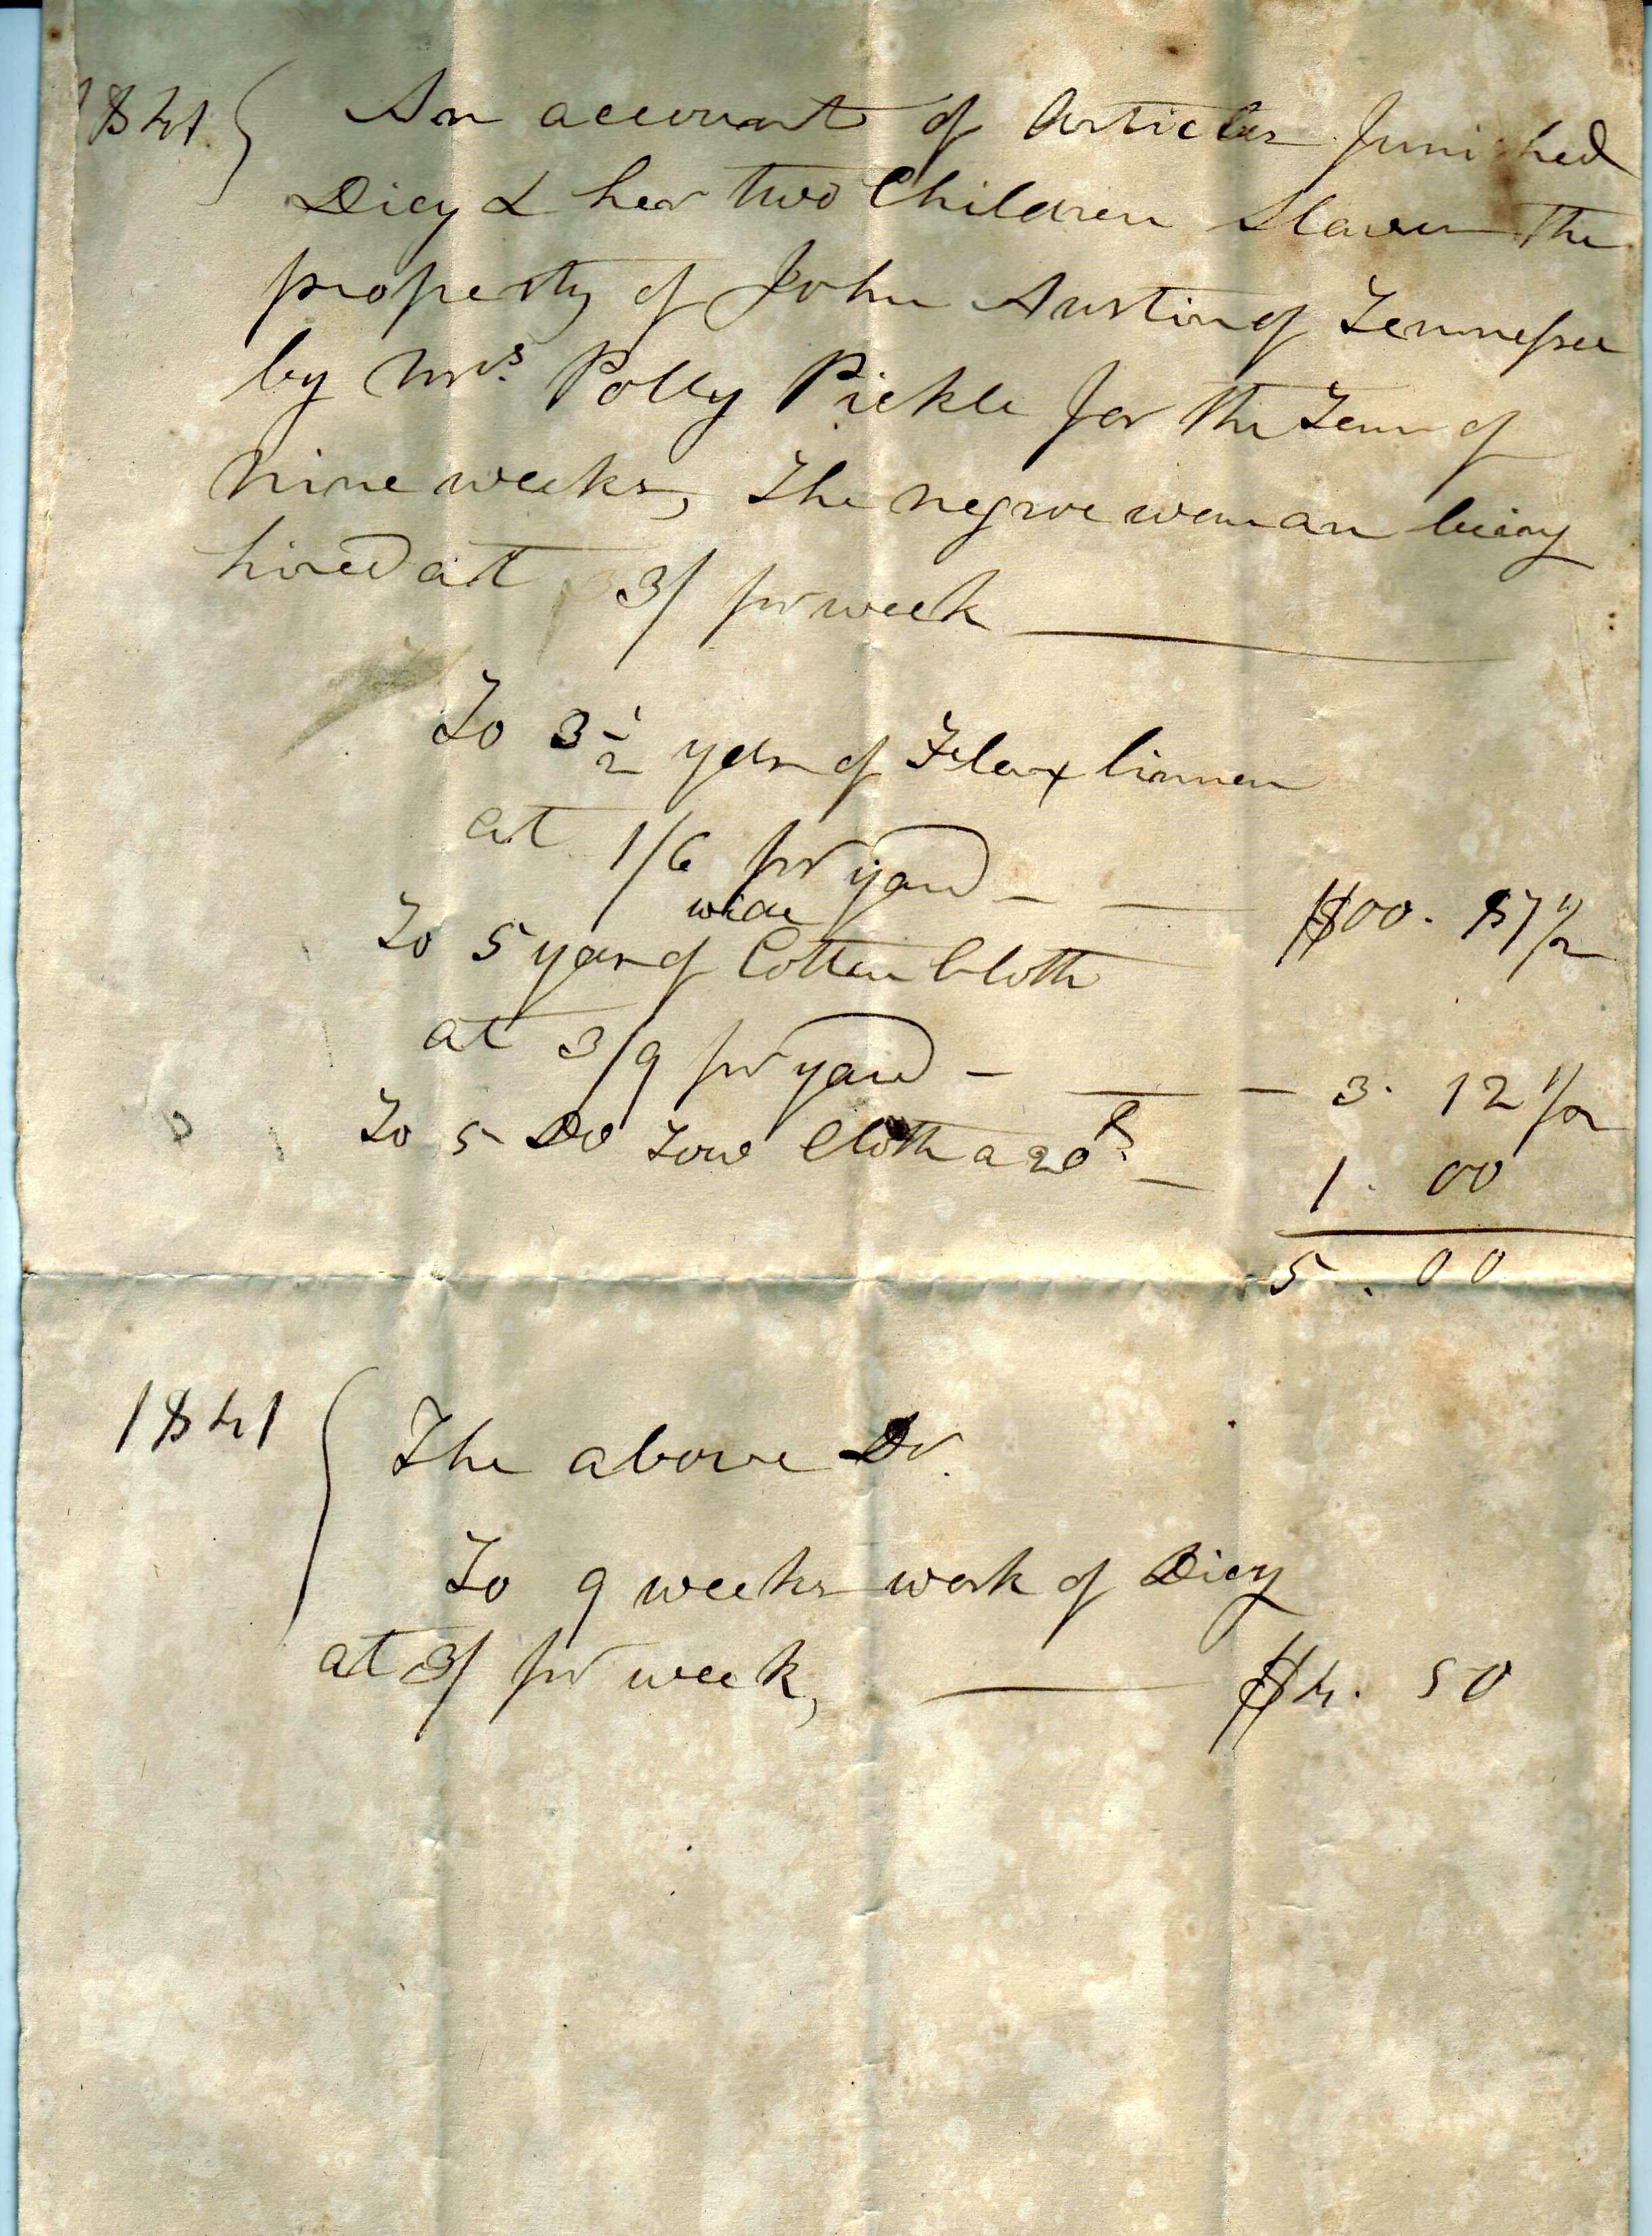 1841 An account of Articles furnished
Dicy & her two Children Slaves the
property of John Austin of Tennessee
by Mrs. Polly Pickle for the Term of
nine weeks, The negroe woman being
hired at 3/ pr week
To 3 1/2 yds of Flax linnen
at 1/6 pr yard - - $00. 87 1/2
wide
To 5 yards of Cotten Cloth
at 3/9 pr yard - - - 3. 12 1/2
To 5 Do Tow Cloth a 20 cts. - 1. 00
5. 00
1841 The above Dr.
To 9 weeks work of Dicy
at 3/ pr week, $4. 50